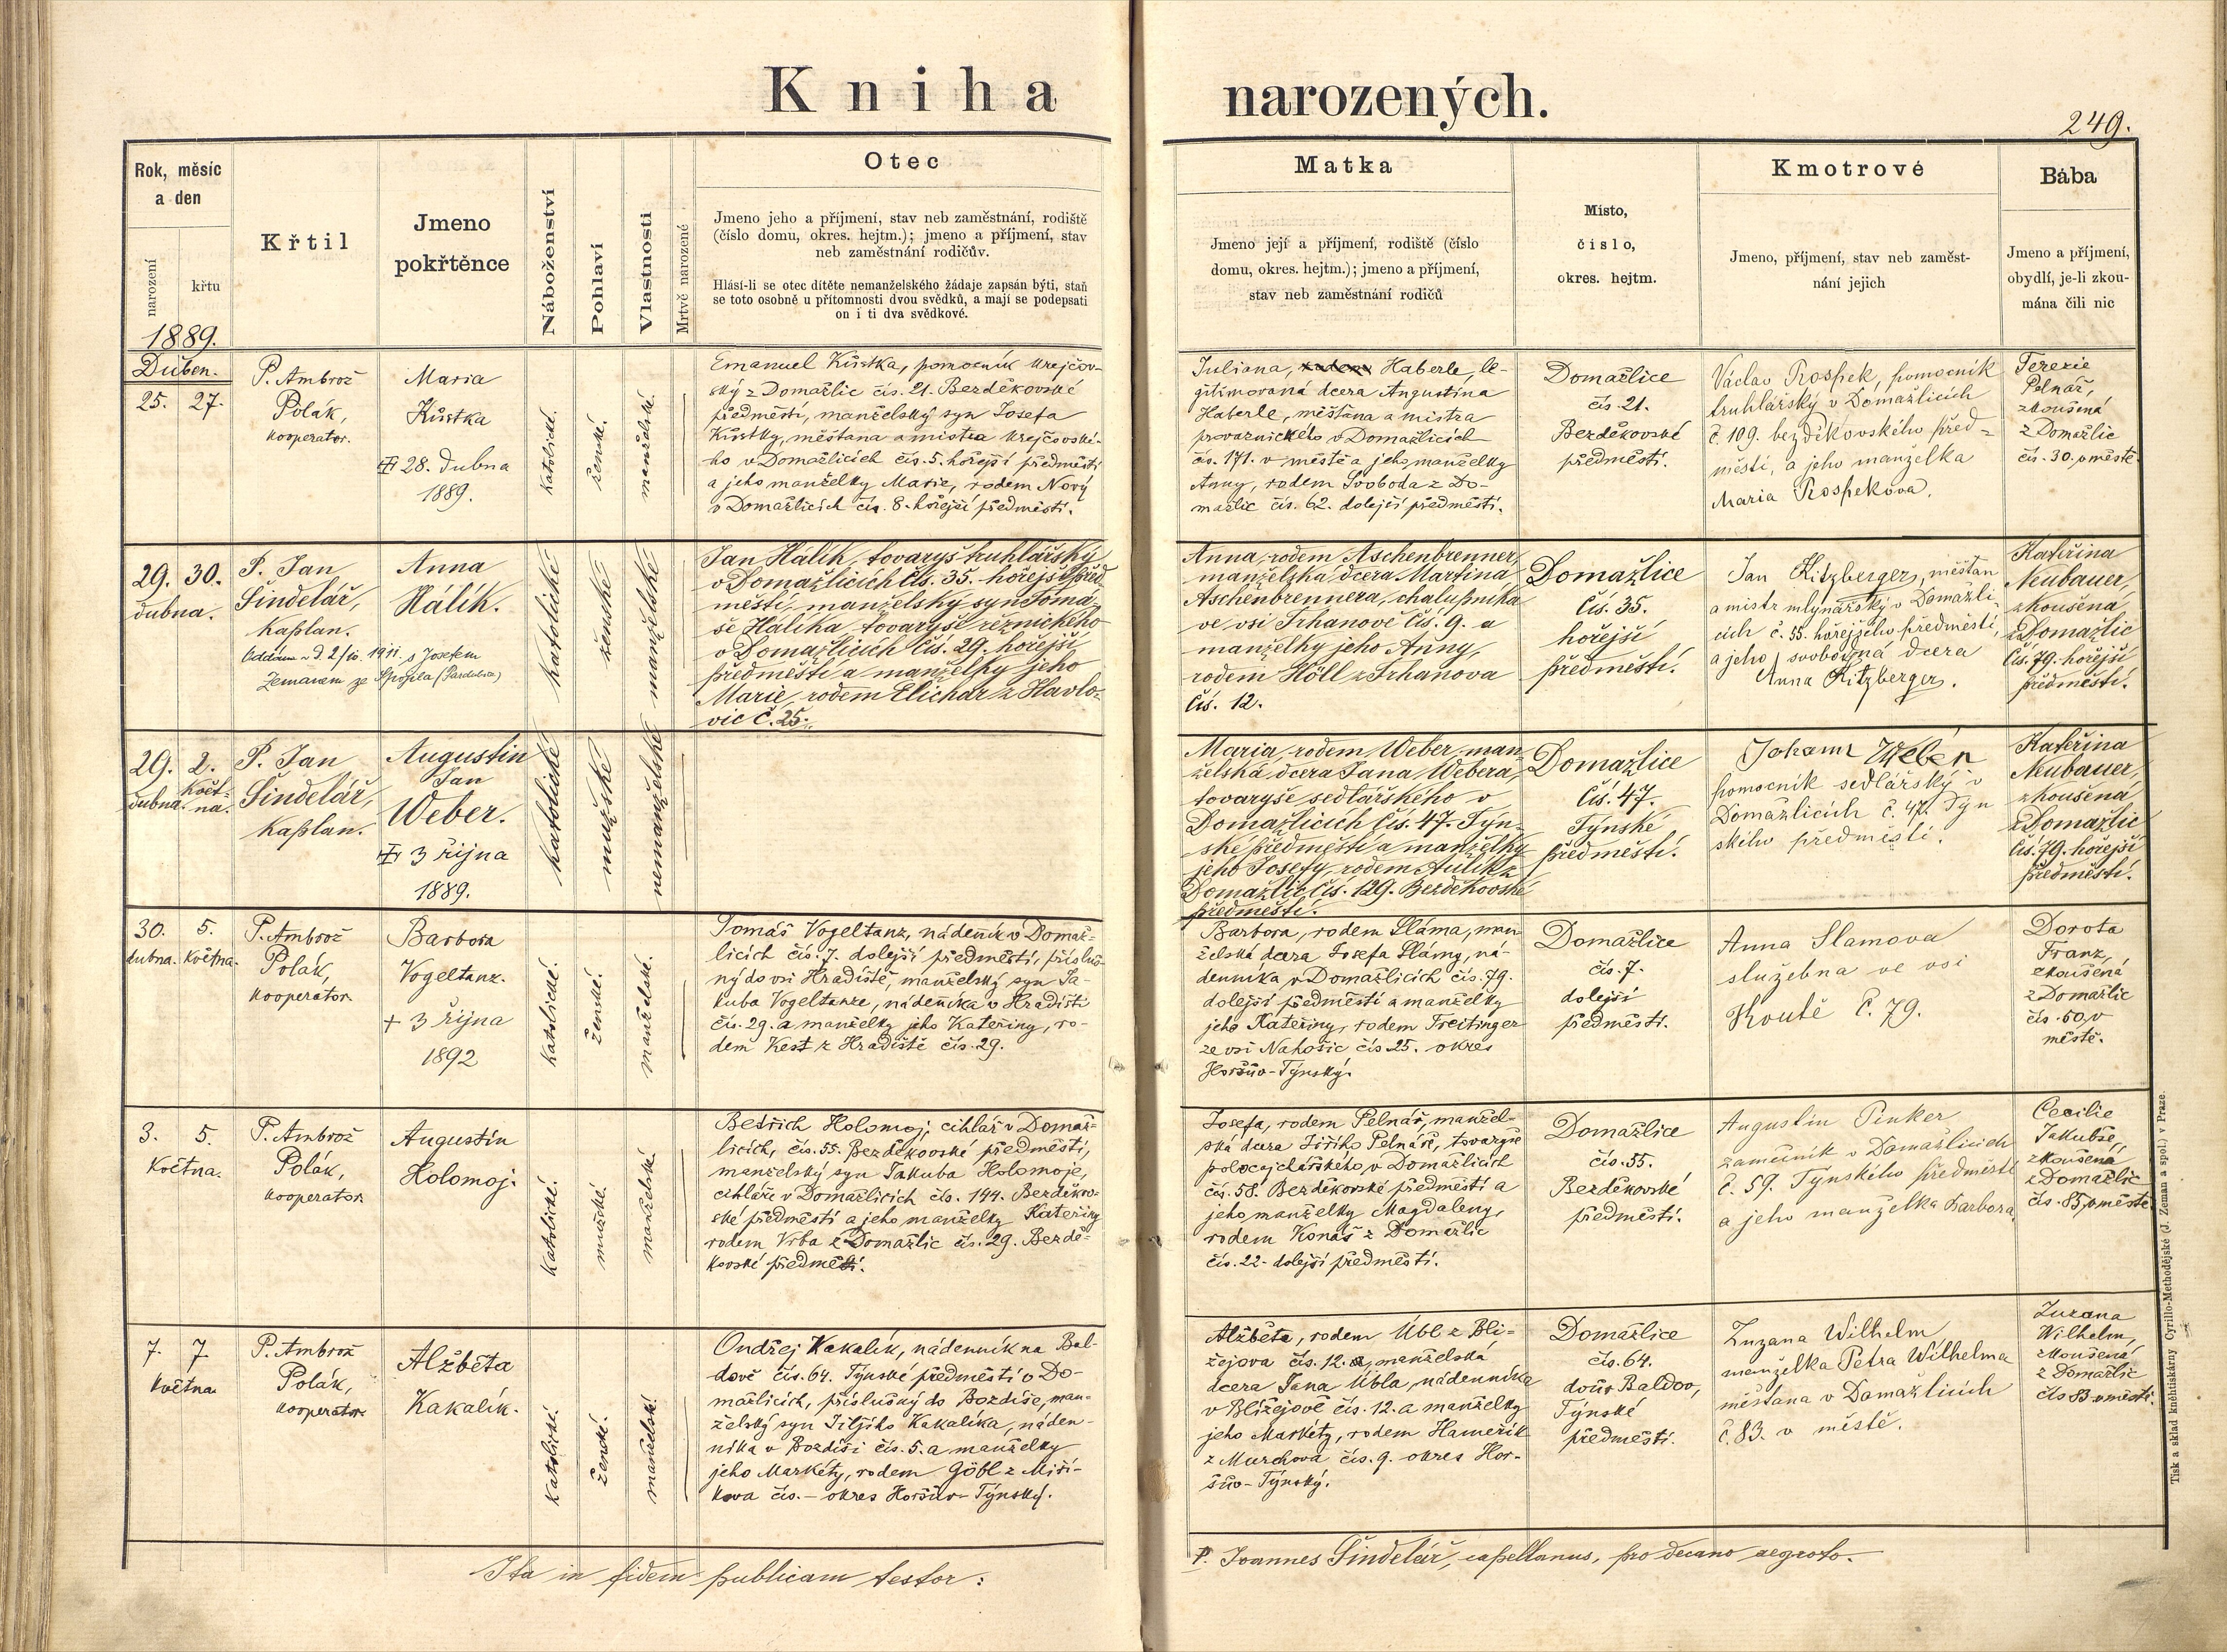 Kniha narozených.
249.
Rok, měsíc
a den
narození
křtu
Křtil
Jmeno
pokřtěnce
Náboženství
Pohlaví
Vlastnosti
Mrtvě narozené
Otec
Jmeno jeho a příjmení, stav neb zaměstnání, rodiště
(číslo domu, okres. hejtm.); jmeno a příjmení, stav
neb zaměstnání rodičův.
Hlásí-li se otec dítěte nemanželského žádaje zapsán býti, staň
se toto osobně u přítomnosti dvou svědků, a mají se podepsati
on i ti dva svědkové.
Matka
Jmeno její a příjmení, rodiště (číslo
domu, okres. hejtm.); jmeno a příjmení,
stav neb zaměstnání rodičů
Misto,
číslo,
okres. hejtm.
Kmotrové
Jmeno, příjmení, stav neb zaměst-
nání jejich
Bába
Jmeno a příjmení,
obydlí, je-li zkou-
mána čili nic
1889.
Duben.
25. 27.
P. Ambrož
Polák,
kooperator.
Maria
Kůstka
28. dubna
1889.
katolické.
ženské.
manželské.
Emanuel Kůstka, pomocník krejčov-
ský z Domažlic čís. 21. Bezděkovské
předměstí, manželský syn Josefa
Kůstky, měštana a mistra krejčovské-
ho v Domažlicích čís. 5. hořejší předměstí
a jeho manželky Marie, rodem Nový
v Domažlicích čís. 8. hořejší předměstí.
Juliana, Haberle, le-
gitimovaná dcera Augustina
Haberle, měštana a mistra
provaznického v Domažlicích
čís. 171. v městě a jeho manželky
Anny, rodem Svoboda z Do-
mažlic čís. 62. dolejší předměstí.
Domažlice
čís. 21.
Bezděkovské
předměstí.
Václav Prospek, pomocník
truhlářský v Domažlicích
č. 109. bezděkovského před=
městí, a jeho manželka
Maria Prospekova.
Terezie
Pelnář,
zkoušená
z Domažlic
čís. 30. v městě.
29. 30.
dubna.
P. Jan
Šindelář,
kaplan.
Anna
Hálík.
Oddána d. 2/10. 1911. s Josefem
Zemanem ze Spojila (Pardubice)
katolické
ženské
manželské
Jan Hálík, tovaryš truhlářský
v Domažlicích čís. 35. hořejší před
městí, manželský syn Tomá-
še Hálíka, tovaryše řeznického
v Domažlicích čís. 29. hořejší
předměstí a manželky jeho
Marie, rodem Elichar z Havlo-
vic č. 25.
Anna, rodem Aschenbrenner,
manželská dcera Martina
Aschenbrennera, chalupníka
ve vsi Trhanově čís. 9. a
manželky jeho Anny,
rodem Höll z Trhanova
čís. 12.
Domažlice
čís. 35.
hořejší
předměstí.
Jan Kitzberger, měštan
a mistr mlynářský v Domažli-
cích č. 35. hořejšího předměstí,
a jeho svobodná dcera
Anna Kitzberger.
Kateřina
Neubauer,
zkoušená,
z Domažlic
čís. 79. hořejší
předměstí.
29. 2.
dubna. květ-
na.
P. Jan
Šindelář,
kaplan.
Augustin
Jan
Weber.
3 října
1889.
katolické
mužské
nemanželské
Maria, rodem Weber, man-
želská dcera Jana Webera,
tovaryše sedlářského v
Domažlicích čís. 47. Týn-
ské předměstí a manželky
jeho Josefy, rodem Aulík z
Domažlic čís. 129. Bezděkovské
předměstí.
Domažlice
čís. 47.
Týnské
předměstí.
Johann Weber
pomocník sedlářský v
Domažlicích č. 47. Týn
ského předměstí.
Kateřina
Neubauer,
zkoušená
z Domažlic
čís. 79. hořejší
předměstí.
30. 5.
dubna. května.
P. Ambrož
Polák,
kooperator.
Barbora
Vogeltanz.
+ 3 října
1892
katolické.
ženské.
manželské.
Tomáš Vogeltanz, nádenník v Domaž-
licích čís. 7. dolejší předměstí, přísluš-
ný do vsi Hradiště, manželský syn Ja-
kuba Vogeltanze, nádeníka v Hradišti
čís. 29. a manželky jeho Kateřiny, ro-
dem Kest z Hradiště čís. 29.
Barbora, rodem Sláma, man-
želská dcera Josefa Slámy, ná-
denníka v Domažlicích čís. 79.
dolejší předměstí a manželky
jeho Kateřiny, rodem Freitinger
ze vsi Nahošic čís. 25. okres
Horšův-Týnský.
Domažlice
čís. 7.
dolejší
předměstí.
Anna Slamova
služebna ve vsi
Koutě č. 79.
Dorota
Franz,
zkoušená
z Domažlic
čís. 60, v
městě.
3. 5.
května.
P. Ambrož
Polák,
kooperator.
Augustin
Holomoj.
katolické.
mužské.
manželské.
Bedřich Holomoj, cihlář v Domaž-
licích, čís. 55. Bezděkovské předměstí,
manželský syn Jakuba Holomoje,
cihláře v Domažlicích čís. 144. Bezděkov-
ské předměstí a jeho manželky Kateřiny
rodem Vrba z Domažlic čís. 29. Bezdě-
kovské předměstí.
Josefa, rodem Pelnář, manžel-
ská dcera Jiřího Pelnáře, tovaryše
v Domažlicích
čís. 58. Bezděkovské předměstí a
jeho manželky Magdaleny,
rodem Konáš z Domažlic
čís. 22. dolejší předměstí.
Domažlice
čís. 55.
Bezděkovské
předměstí.
Augustin Pinker
zámečník v Domažlicích
č. 59. Týnského předměstí
a jeho manželka Barbora.
Cecilie
Jakubše,
zkoušená
z Domažlic
čís. 85, v městě.
7. 7
května.
P. Ambrož
Polák,
kooperator.
Alžběta
Kakalík.
katolické.
ženské.
manželské.
Ondřej Kakalík, nádenník na Bal-
dově čís. 64. Týnské předměstí v Do-
mažlicích, příslušný do Bozdíše, man-
želský syn Jiljího Kakalíka, náden-
níka v Bozdíši čís. 5. a manželky
jeho Markéty, rodem Göbl z Miří-
kova čís. – okres Horšův-Týnský.
Alžběta, rodem Übl z Bli-
žejova čís. 12. a, manželská
dcera Jana Übla, nádenníka
v Bližejově čís. 12. a manželky
jeho Markéty, rodem Hameřík
z Murchova čís. 9. okres Hor-
šův-Týnský.
Domažlice
čís. 64.
dvůr Baldov,
Týnské
předměstí.
Zuzana Wilhelm,
manželka Petra Wilhelma
měštana v Domažlicích
č. 83. v městě.
Zuzana
Wilhelm,
zkoušená
z Domažlic
čís 83 v městě.
Ita in fidem publicam testor:
P. Joannes Šindelář, capellanus, pro decano aegroto.
Tisk a sklad knihtiskárny Cyrillo-Methodějské (J. Zeman a spol.) v Praze.